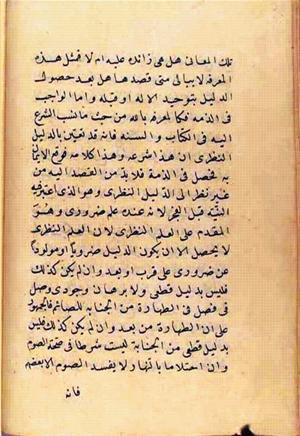 تلك المعانى هل هى زائده عليه ام لا فمثل هذه
المعرفه لا يبالى متى قصدها هل بعد حصول
الدليل بتوحيد الاله او قبله واما الواجب
فى الذمه فكالمعرفه بالله من حيث ما نسب الشرع
اليه فى الكتاب والسنه فانه قد تعين بالدليل
النظرى ان هذا شرعه وهذا كلامه فوقع الايمان
به فحصل فى الذمة فلا بد من القصد اليه من
غير نظر الى الدليل النظرى وهو الذى اعتبر فيه
النية قبل الفجر لانه عنده علم ضرورى وهو
المقدم على العلم النظرى لان العلم النظرى
لا يحصل الا ان يكون الدليل ضروريا او مولودا
عن ضرورى على قرب او بعد وان لم يكن كذلك
فليس بدليل قطعى ولا برهان وجودى وصل
فى فصل فى الطهارة من الجنابه للصائم فالجمهور
على ان الطهارة من بعد وان لم يكن كذلك فليس
بدليل قطعى من الجنابة ليست شرطا فى صحة الصوم
وان احتلاما بالنهار لا يفسد الصوم الا بعضهم
فانه